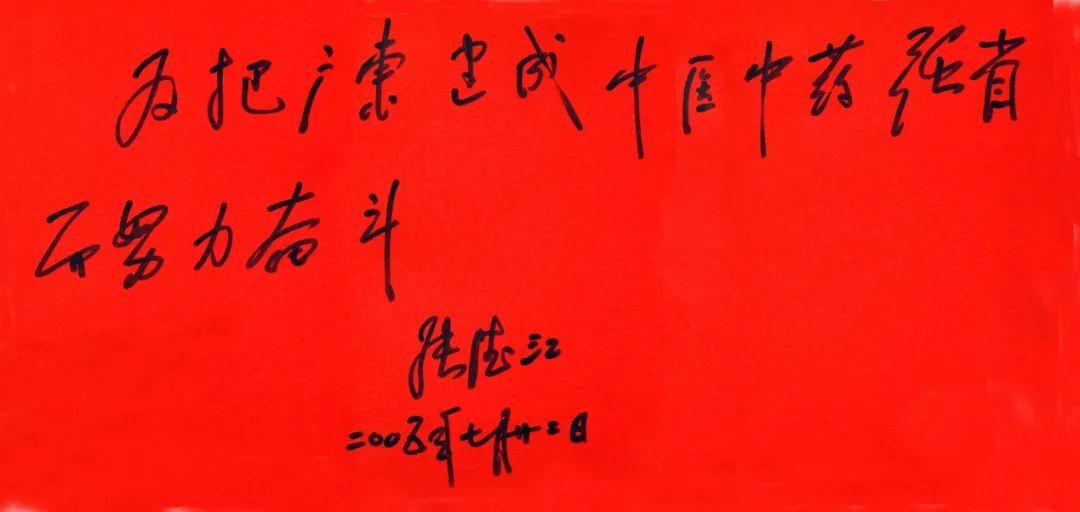 为把广东建成中医中药强省
而努力奋斗
张德江
二00五年七月廿二日